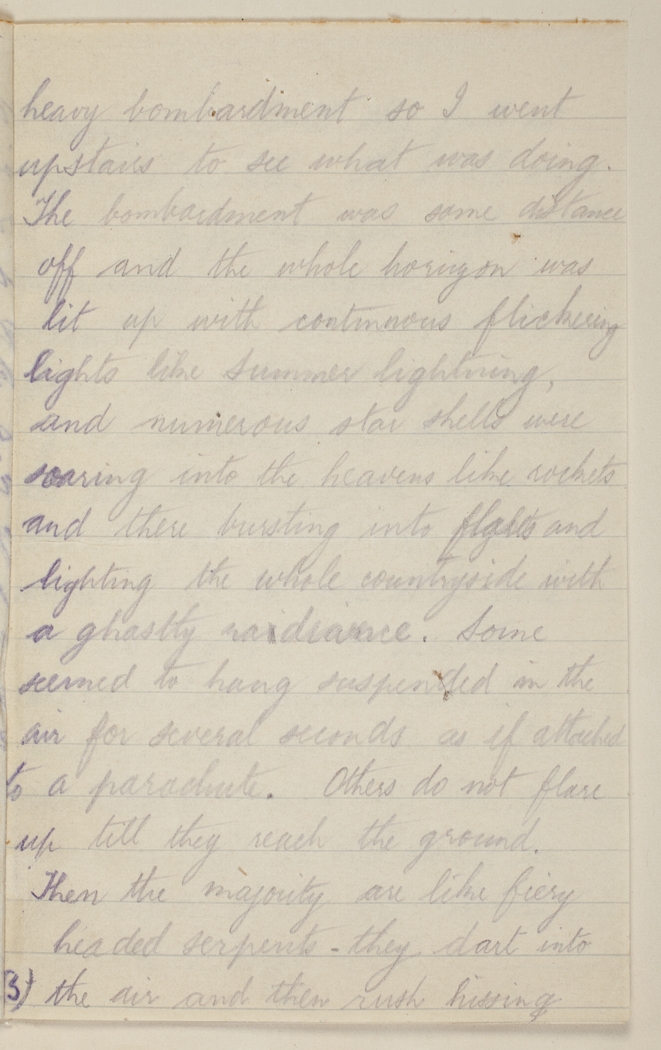 heavy bombardment so I went
upstairs to see what was doing.
The bombardment was some distance
off and the whole horizon was
lit up with continuous flickering
lights like summer lightning,
and numerous star shells were
soaring into the heavens like rockets
and there bursting into and
lighting the whole countryside with
a ghastly raidiance. Some
seemed to hang suspended in the
air for several seconds as if attached
to a parachute. Others do not flare
up till they reach the ground.
Then the majority are like fiery
headed serpents - they dart into
3) the air and then rush hissing